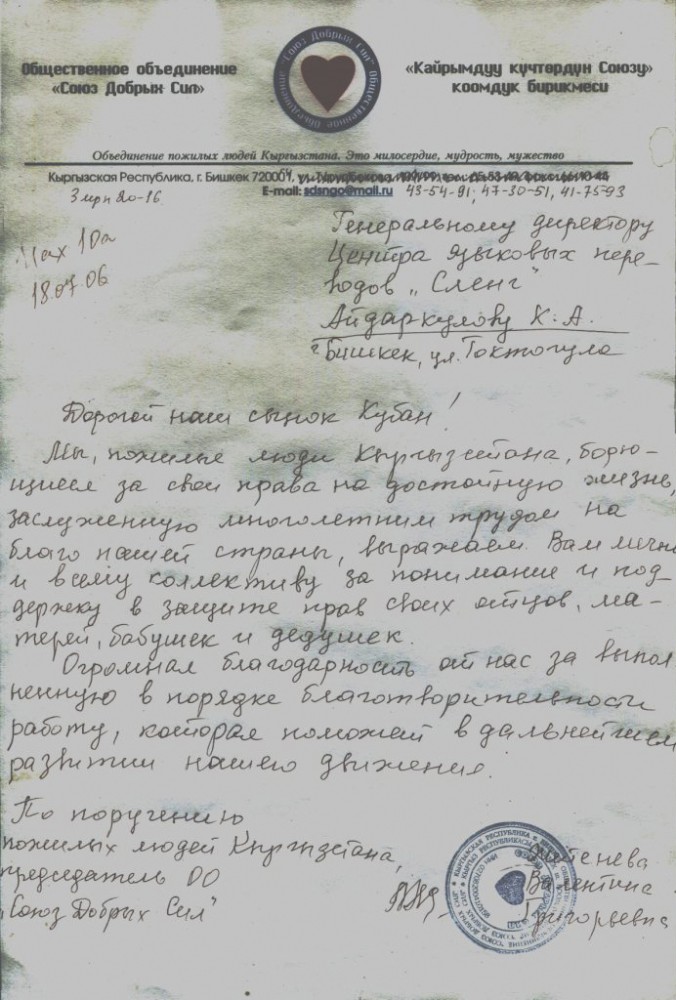 Общественное объединение
«Союз Добрых Сил»
«Кайрымдуу күчтөрдүн Союзу»
коомдук бирикмеси
Общественное Объединение "Союз Добрых Сил"
Объединение пожилых людей Кыргызстана. Это милосердие, мудрость, мужество
Кыргызская Республика, г. Бишкек 720001,
E-mail: sdsngo@mail.ru 43-54-91, 47-30-51, 41-75-93
3 мрн 20-16
18.07.06
Генеральному директору
Центра языковых пере-
водов „Сленг"
Айдаркулову К.А.
г. Бишкек, ул. Токтогула
Дорогой наш сынок Кубан!
Мы, пожилые люди Кыргызстана, борю-
щиеся за свои права на достойную жизнь,
заслуженную многолетним трудом на
благо нашей страны, выражаем Вам лично
и всему коллективу за понимание и под-
держку в защите прав своих отцов, ма-
терей, бабушек и дедушек.
Огромная благодарность от нас за выпол
ненную в порядке благотворительности
работу, которая поможет в дальнейшем
развитии нашего движения.
По поручению
пожилых людей Кыргызстана,
председатель ОО
„Союз Добрых Сил"
Валентина
Григорьевна